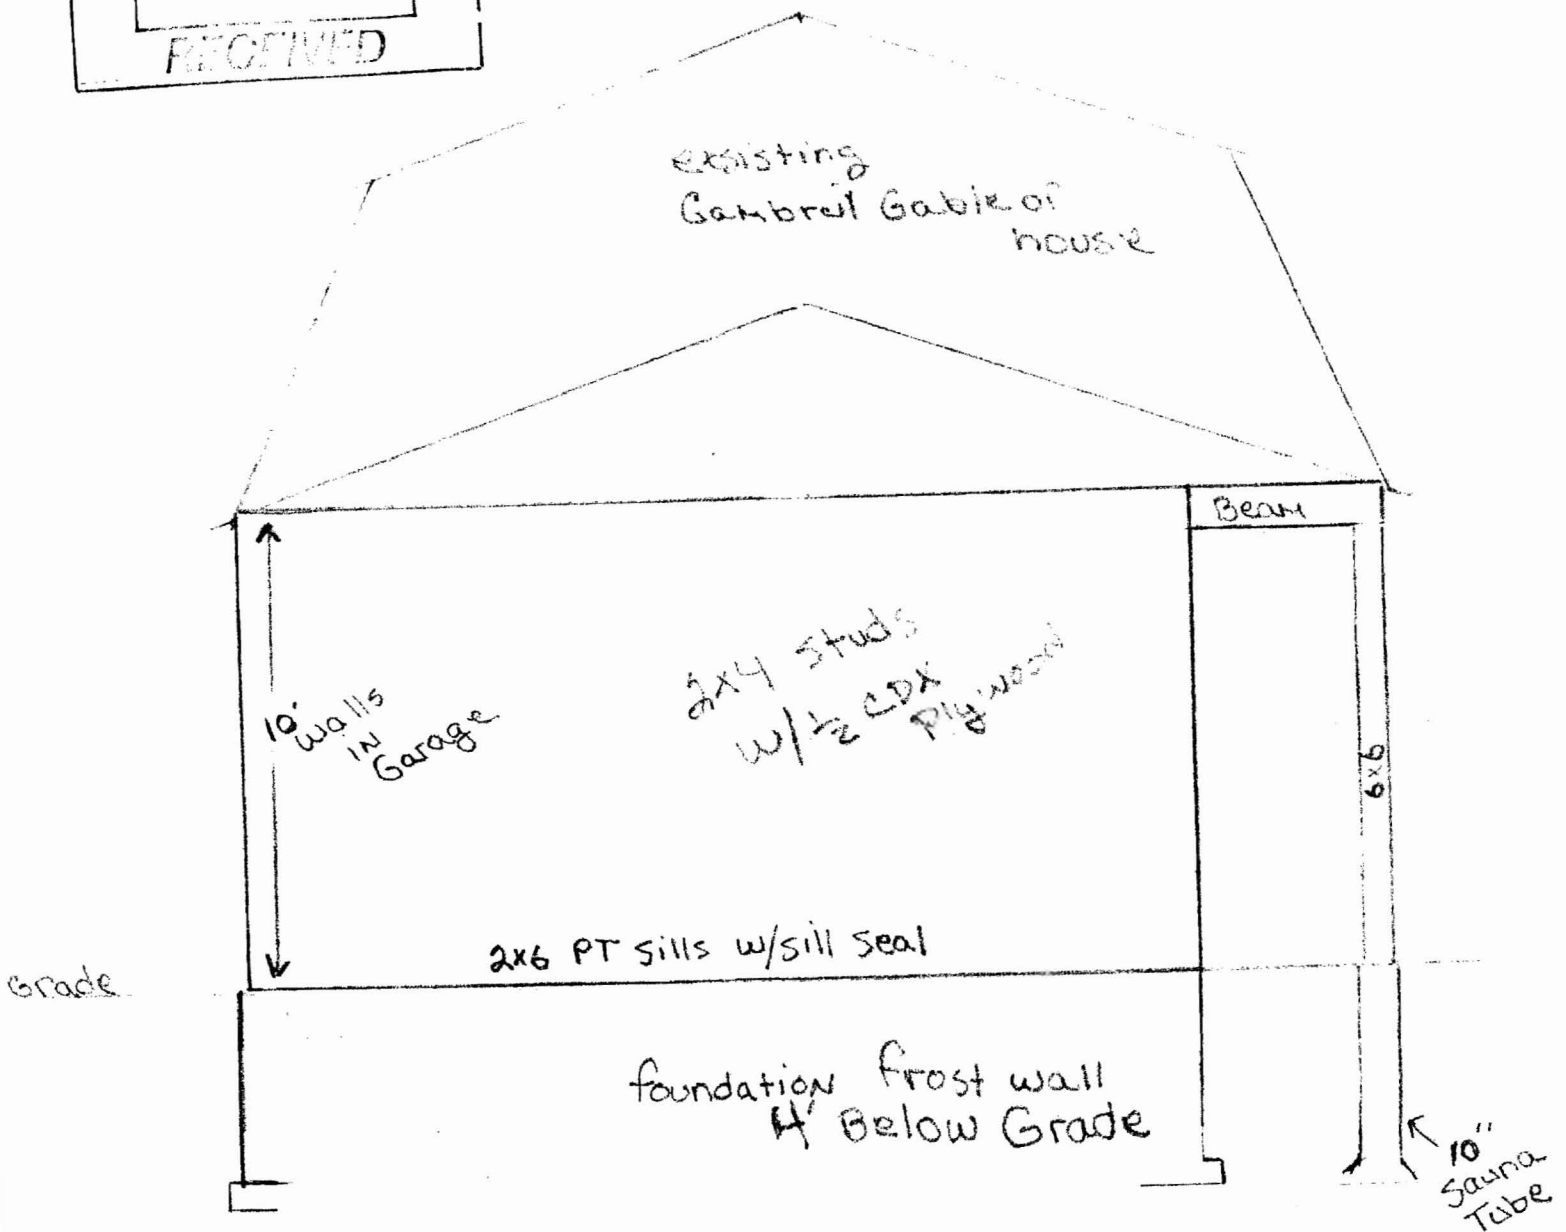 RECEIVED
exsisting
Gambrel Gable of
house
Beam
10' walls
IN
Garage
2x4 studs
w/ 1/2 CDX
Plywood
6x6
2x6 PT Sills w/sill seal
Grade
foundation frost wall
4' Below Grade
10"
Sauna
Tube